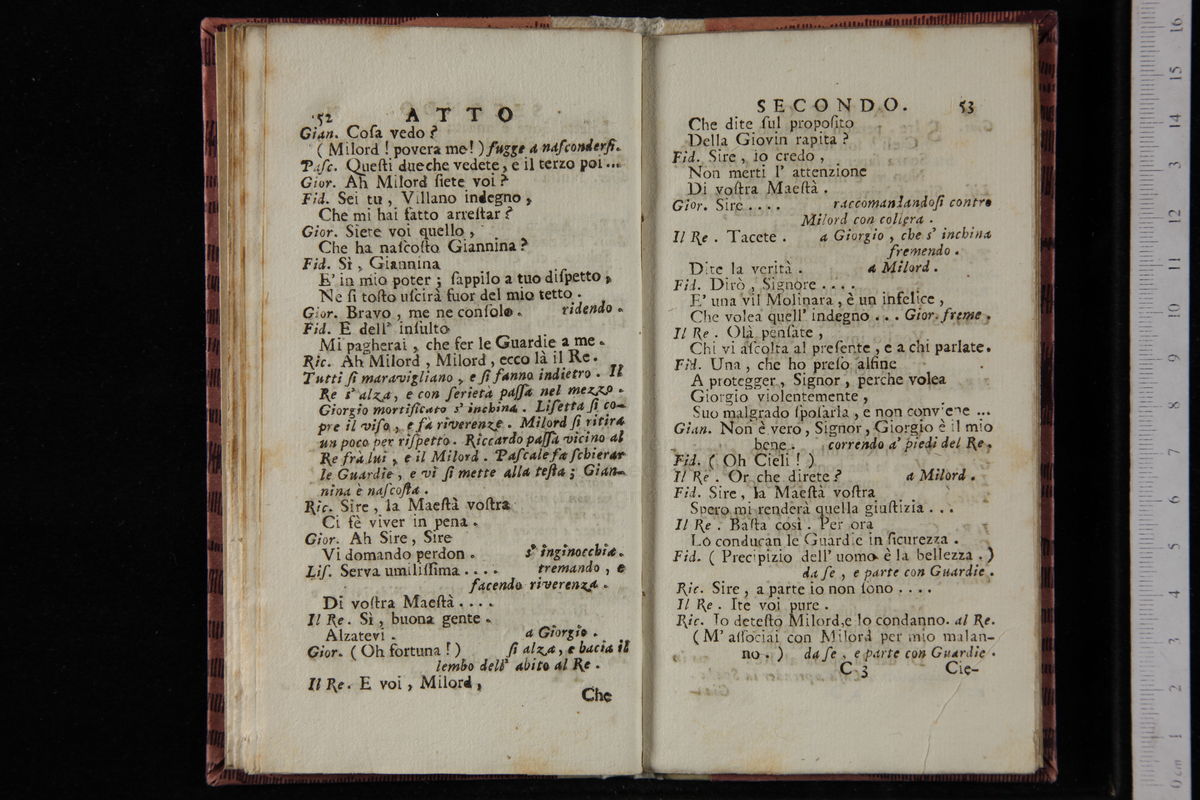 52 ATTO
Gian. Coſa vedo?
(Milord! povera me!) fugge a naſconderſi.
Paſc. Queſti due che vedete, e il terzo poi...
Gior. Ah Milord ſiete voi?
Fid. Sei tu, Villano indegno,
Che mi hai fatto arreſtar?
Gior. Siete voi quello,
Che ha naſcoſto Giannina?
Fid. Sì, Giannina
E' in mio poter; ſappilo a tuo diſpetto,
Ne ſi toſto uſcirà fuor del mio tetto.
Gior. Bravo, me ne conſolo. ridendo.
Fid. E dell' inſulto
Mi pagherai, che fer le Guardie a me.
Ric. Ah Milord, Milord, ecco là il Re.
Tutti ſi maravigliano, e ſi fanno indietro. Il
Re s' alza, e con ſerietà paſſa nel mezzo.
Giorgio mortificato s' inchina. Liſetta ſi co-
pre il viſo, e fa riverenze. Milord ſi ritira
un poco per riſpetto. Riccardo paſſa vicino al
Re frà lui, e il Milord. Paſcale fa ſchierar
le Guardie, e vi ſi mette alla teſta; Gian-
nina è naſcoſta.
Ric. Sire, la Maeſtà voſtra
Ci fè viver in pena.
Gior. Ah Sire, Sire
Vi domando perdon. s' inginocchia.
Liſ. Serva umiliſſima.... tremando, e
facendo riverenza.
Di voſtra Maeſtà....
Il Re. Sì, buona gente.
Alzatevi. a Giorgio.
Gior. (Oh fortuna!) ſi alza, e bacia il
lembo dell' abito al Re.
Il Re. E voi, Milord,
Che
SECONDO. 53
Che dite ſul propoſito
Della Giovin rapita?
Fid. Sire, io credo,
Non merti l' attenzione
Di voſtra Maeſtà.
Gior. Sire.... raccomandandoſi contro
Milord con collera.
Il Re. Tacete. a Giorgio, che s' inchina
fremendo.
Dite la verità. a Milord.
Fid. Dirò, Signore....
E' una vil Molinara, è un infelice,
Che volea quell' indegno... Gior. freme.
Il Re. Olà penſate,
Chi vi aſcolta al preſente, e a chi parlate.
Fid. Una, che ho preſo alfine
A protegger, Signor, perche volea
Giorgio violentemente,
Suo malgrado ſpoſarla, e non conviene...
Gian. Non è vero, Signor, Giorgio è il mio
bene. correndo a' piedi del Re.
Fid. (Oh Cieli!)
Il Re. Or che direte? a Milord.
Fid. Sire, la Maeſtà voſtra
Spero mi renderà quella giuſtizia...
Il Re. Baſta così. Per ora
Lo conducan le Guardie in ſicurezza.
Fid. (Precipizio dell' uomo è la bellezza.)
da ſe, e parte con Guardie.
Ric. Sire, a parte io non ſono....
Il Re. Ite voi pure.
Ric. Io deteſto Milord, e lo condanno. al Re.
(M' aſſociai con Milord per mio malan-
no.) da ſe, e parte con Guardie.
C 3 Cie-